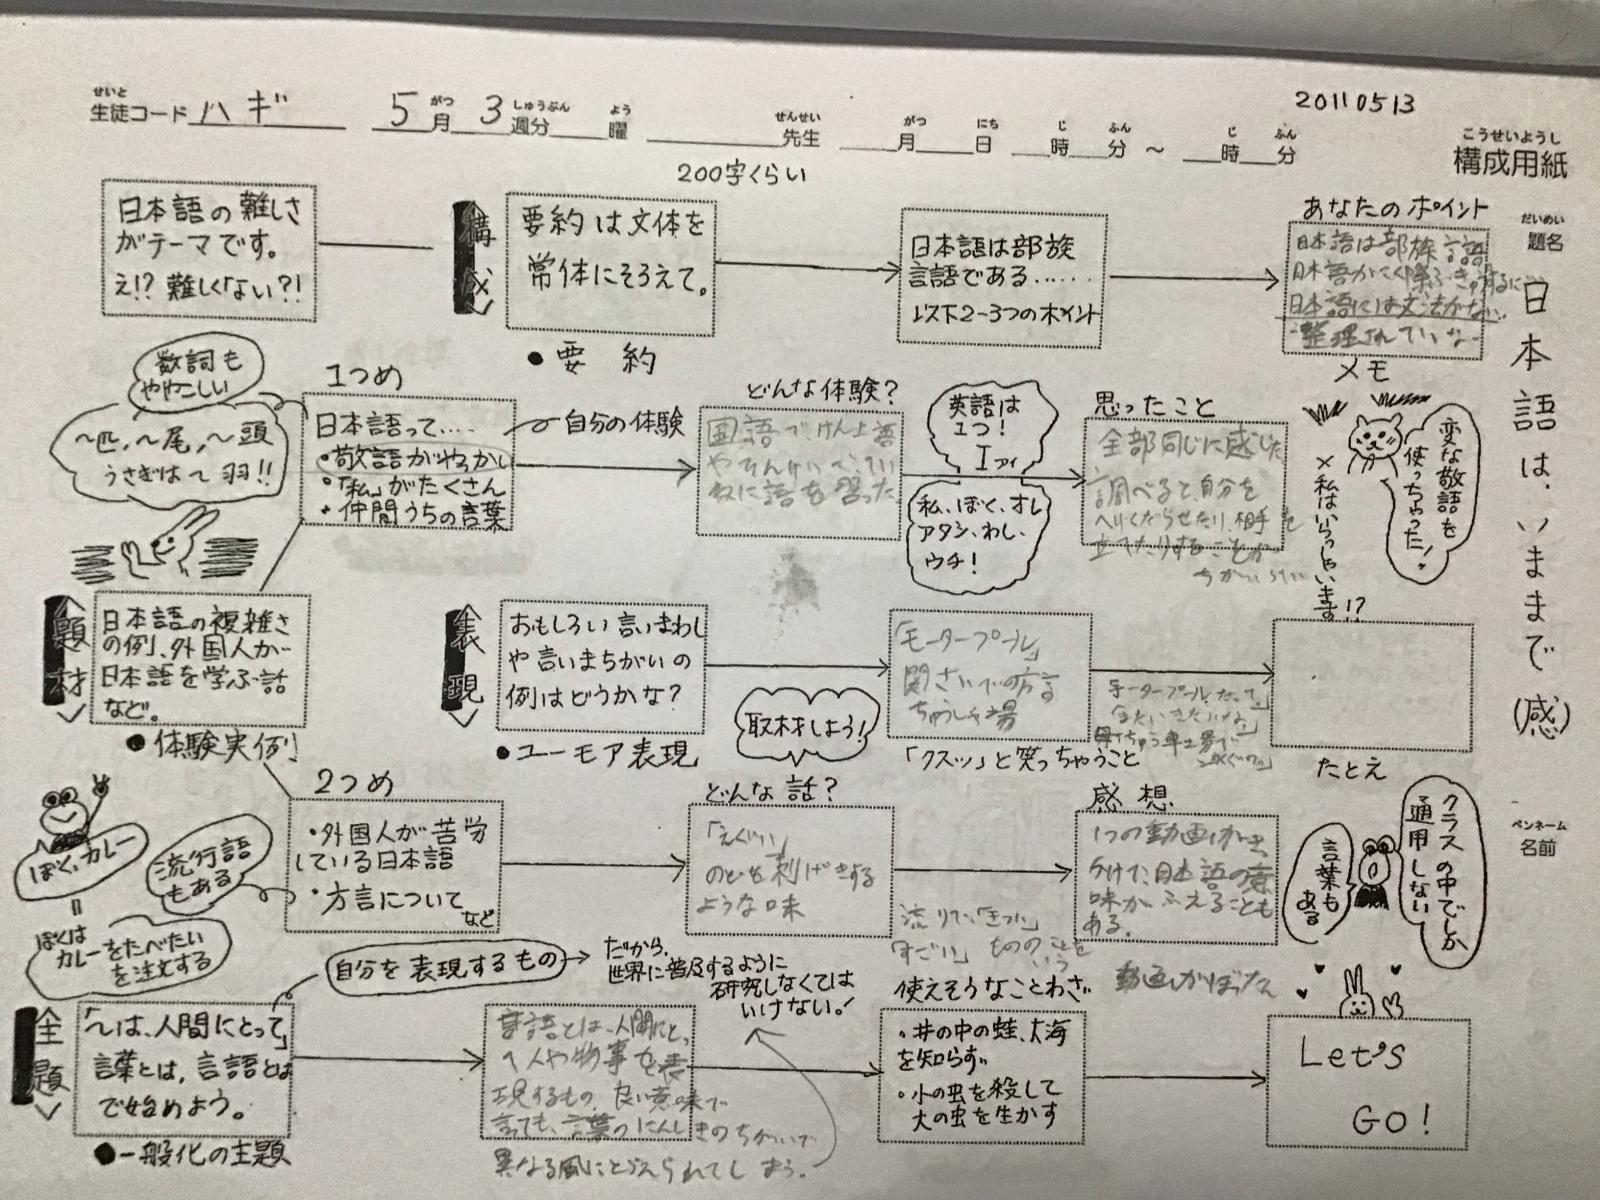 20110513
生徒コード ハギ 5月 3週分 曜 先生 月 日 時 分 ～ 時 分
せいと がつ しゅうぶん よう せんせい がつ にち じ ふん じ ふん
こうせいようし
構成用紙
だいめい
題名
日本語は、いままで(感)
ペンネーム
名前
200字くらい
日本語の難しさ
がテーマです。
え!? 難しくない?!
構成
要約は文体を
常体にそろえて。
●要約
日本語は部族
言語である……
以下2-3つのポイント
あなたのポイント
日本語は部族言語
日本語には文法がない
整理されていな
メモ
数詞も
ややこしい
～匹、～尾、～頭
うさぎは～羽!!
1つめ
日本語って‥‥
・敬語がやっかい
・「私」がたくさん
・仲間うちの言葉
自分の体験
どんな体験?
国語でけんじょう語
語を習った
英語は
1つ!
I アイ
私、ぼく、オレ
アタシ、わし、
ウチ!
思ったこと
全部同じに感じた
調べると、自分を
へりくだらせたり、相手を
立てたりすることが
変な敬語を
使っちゃった!
×私はいらっしゃいます!?
題材
日本語の複雑さ
の例、外国人が
日本語を学ぶ話
など。
●体験実例
表現
おもしろい言いまわし
や言いまちがいの
例はどうかな?
●ユーモア表現
取材しよう!
「モータープール」
関さいでの方言
ちゅうしゃ場
「クスッ」と笑っちゃうこと
モータープールだって、
たとえ
2つめ
・外国人が苦労
している日本語
・方言について
など
ぼく、カレー
=
ぼくは
カレーをたべたい
を注文する
流行語
もある
どんな話?
「えぐい」
のどを刺げきする
ような味
すごい」もののことを
いう
感想
1つの動画がき
かけで、日本語の意
味が、ふえることも
ある。
クラスの中でしか
通用しない
言葉も
ある
全題
「～は、人間にとって」
言葉とは、言語とは
で始めよう。
●一般化の主題
自分を表現するもの
だから、
世界に普及するように
研究しなくては
いけない!
言語とは、人間にとっ
て人や物事を表
現するもの。良い意味で
言っても、言葉のにんしきのちがいで
異なる風にとらえられてしまう。
使えそうなことわざ
・井の中の蛙、大海
を知らず
・小の虫を殺して
大の虫を生かす
Let's
GO!